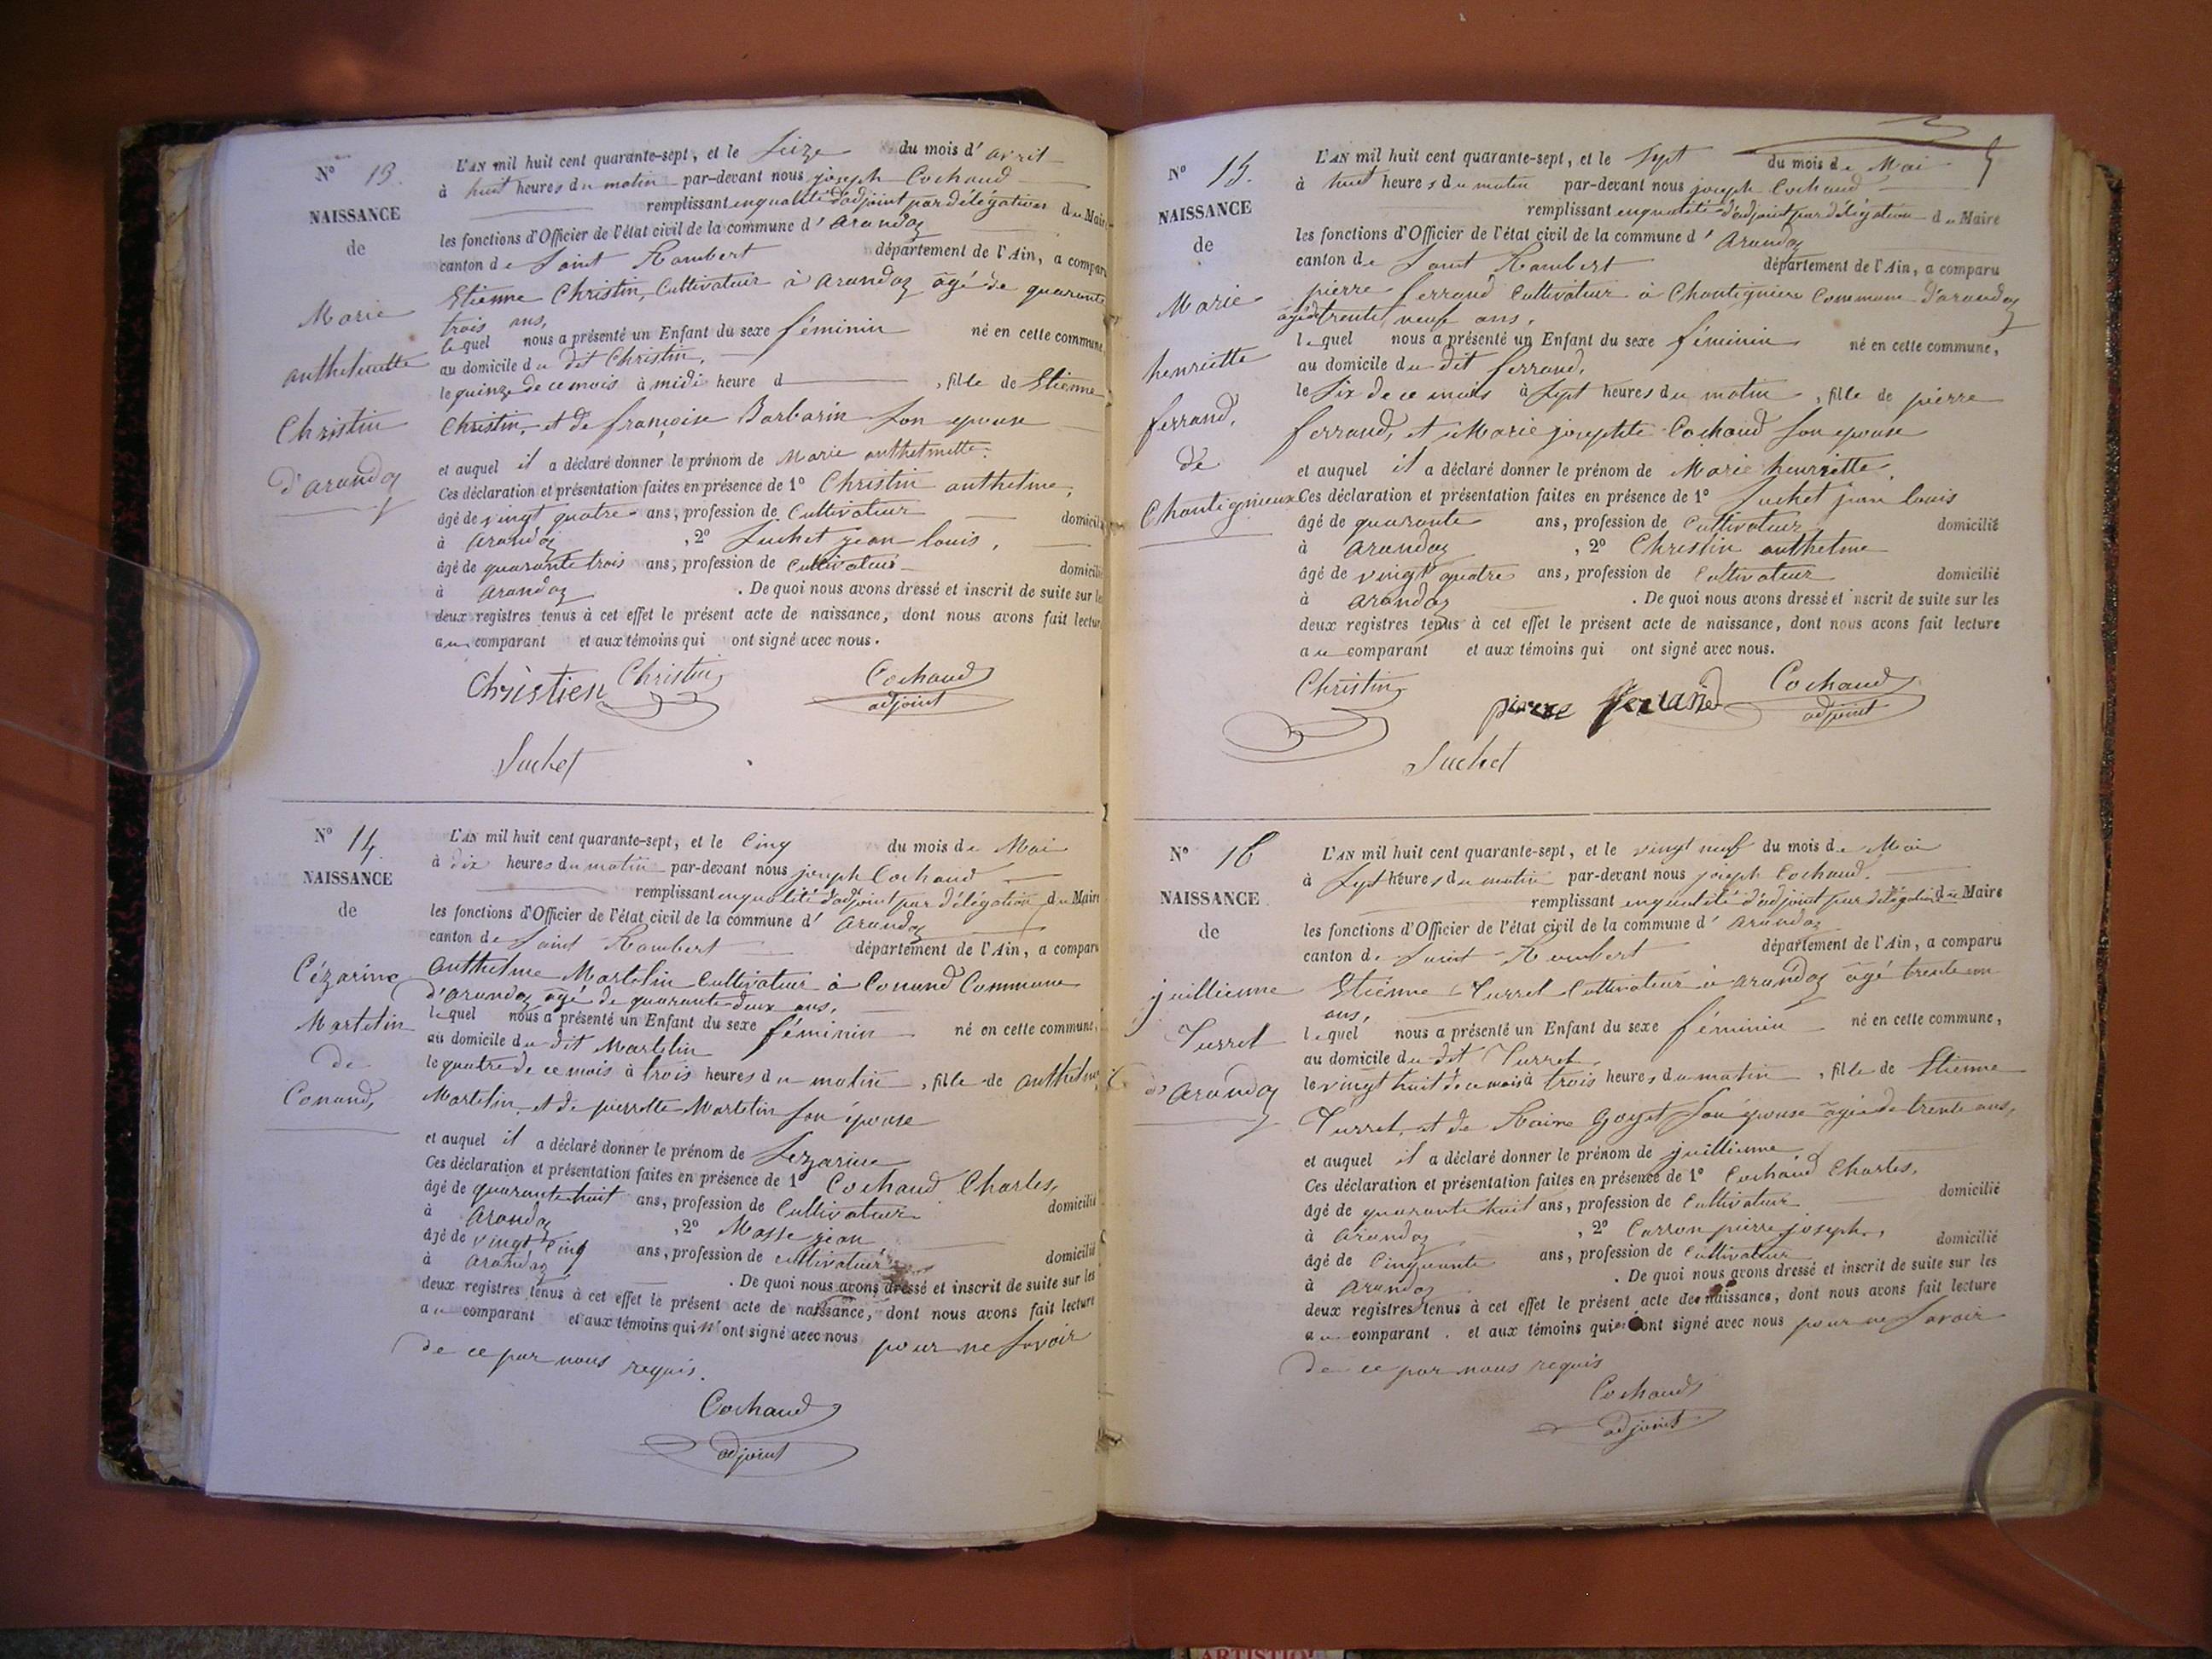 N° 13.
NAISSANCE
de
Marie
anthelmette
Christin
d'arandaz
L'AN mil huit cent quarante-sept, et le Seize du mois d'avril
à huit heures du matin par-devant nous joseph Cochaud
remplissant enqualité d'adjoint par délégation du Maire
les fonctions d'Officier de l'état civil de la commune d'arandaz
canton de Saint Rambert département de l'Ain, a comparu
Etienne Christin, Cultivateur à arandaz âgé de quarante
trois ans,
lequel nous a présenté un Enfant du sexe féminin né en cette commune,
au domicile du dit Christin,
le quinze de ce mois à midi heure d , fille de Etienne
Christin, et de françoise Barbarin Son epouse
et auquel il a déclaré donner le prénom de Marie anthelmette.
Ces déclaration et présentation faites en présence de 1° Christin anthelme,
âgé de vingt quatre ans, profession de Cultivateur domicilié
à arandaz , 2° Suchet jean louis,
âgé de quarante trois ans, profession de Cultivateur domicilié
à arandaz . De quoi nous avons dressé et inscrit de suite sur les
deux registres tenus à cet effet le présent acte de naissance, dont nous avons fait lecture
au comparant et aux témoins qui ont signé avec nous.
Christien Christin Cochaud
adjoint
Suchet
N° 14.
NAISSANCE
de
Cézarine
Martelin
de
Conand,
L'AN mil huit cent quarante-sept, et le Cinq du mois de Mai
à dix heures du matin par-devant nous joseph Cochaud
remplissant enqualité d'adjoint par délégation du Maire
les fonctions d'Officier de l'état civil de la commune d'arandaz
canton de Saint Rambert département de l'Ain, a comparu
Anthelme Martelin Cultivateur à Conand Commune
d'arandaz âgé de quarante deux ans,
lequel nous a présenté un Enfant du sexe féminin né en cette commune,
au domicile du dit Martelin
le quatre de ce mois à trois heures du matin , fille de anthelme
Martelin, et de pierrette Martelin Son épouse
et auquel il a déclaré donner le prénom de Sezarine
Ces déclaration et présentation faites en présence de 1° Cochaud Charles,
âgé de quarante huit ans, profession de Cultivateur domicilié
à arandaz , 2° Masse jean
âgé de vingt Cinq ans, profession de cultivateur domicilié
à arandaz . De quoi nous avons dressé et inscrit de suite sur les
deux registres tenus à cet effet le présent acte de naissance, dont nous avons fait lecture
au comparant et aux témoins qui n'ont signé avec nous pour ne Savoir
de ce par nous requis.
Cochaud
adjoint
5
N° 15.
NAISSANCE
de
Marie
henriette
ferrand,
de
Chantignieux
L'AN mil huit cent quarante-sept, et le Sept du mois de Mai
à huit heures du matin par-devant nous joseph Cochaud
remplissant enqualité d'adjoint par délégation du Maire
les fonctions d'Officier de l'état civil de la commune d'arandaz
canton de Saint Rambert département de l'Ain, a comparu
pierre ferrand Cultivateur à Chantignieux Commune d'arandaz
âgé de trente neuf ans,
lequel nous a présenté un Enfant du sexe féminin né en cette commune,
au domicile du dit ferrand,
le Six de ce mois à Sept heures du matin , fille de pierre
ferrand, et Marie josephte Cochaud Son epouse
et auquel il a déclaré donner le prénom de Marie henriette.
Ces déclaration et présentation faites en présence de 1° Suchet jean louis
âgé de quarante ans, profession de Cultivateur domicilié
à arandaz , 2° Christin anthelme
âgé de vingt quatre ans, profession de Cultivateur domicilié
à arandaz . De quoi nous avons dressé et inscrit de suite sur les
deux registres tenus à cet effet le présent acte de naissance, dont nous avons fait lecture
au comparant et aux témoins qui ont signé avec nous.
Christin pierre ferrand Cochaud
adjoint
Suchet
N° 16
NAISSANCE
de
juillienne
Turrel
d'Arandaz
L'AN mil huit cent quarante-sept, et le vingt neuf du mois de Mai
à Sept heures du matin par-devant nous joseph Cochaud.
remplissant enqualité d'adjoint par délégation du Maire
les fonctions d'Officier de l'état civil de la commune d'arandaz
canton de Saint Rambert département de l'Ain, a comparu
Etienne Turrel Cultivateur à arandaz âgé trente un
ans,
lequel nous a présenté un Enfant du sexe féminin né en cette commune,
au domicile du dit Turrel
le vingt huit de ce mois à trois heures du matin , fille de Etienne
Turrel, et de Raine Goyet Son épouse âgée de trente ans,
et auquel il a déclaré donner le prénom de juillienne
Ces déclaration et présentation faites en présence de 1° Cochaud Charles,
âgé de quarante huit ans, profession de Cultivateur domicilié
à arandaz , 2° Carron pierre joseph,
âgé de Cinquante ans, profession de Cultivateur domicilié
à arandaz . De quoi nous avons dressé et inscrit de suite sur les
deux registres tenus à cet effet le présent acte de naissance, dont nous avons fait lecture
au comparant et aux témoins qui ont signé avec nous pour ne Savoir
de ce par nous requis
Cochaud
adjoint
ARTISTIQ